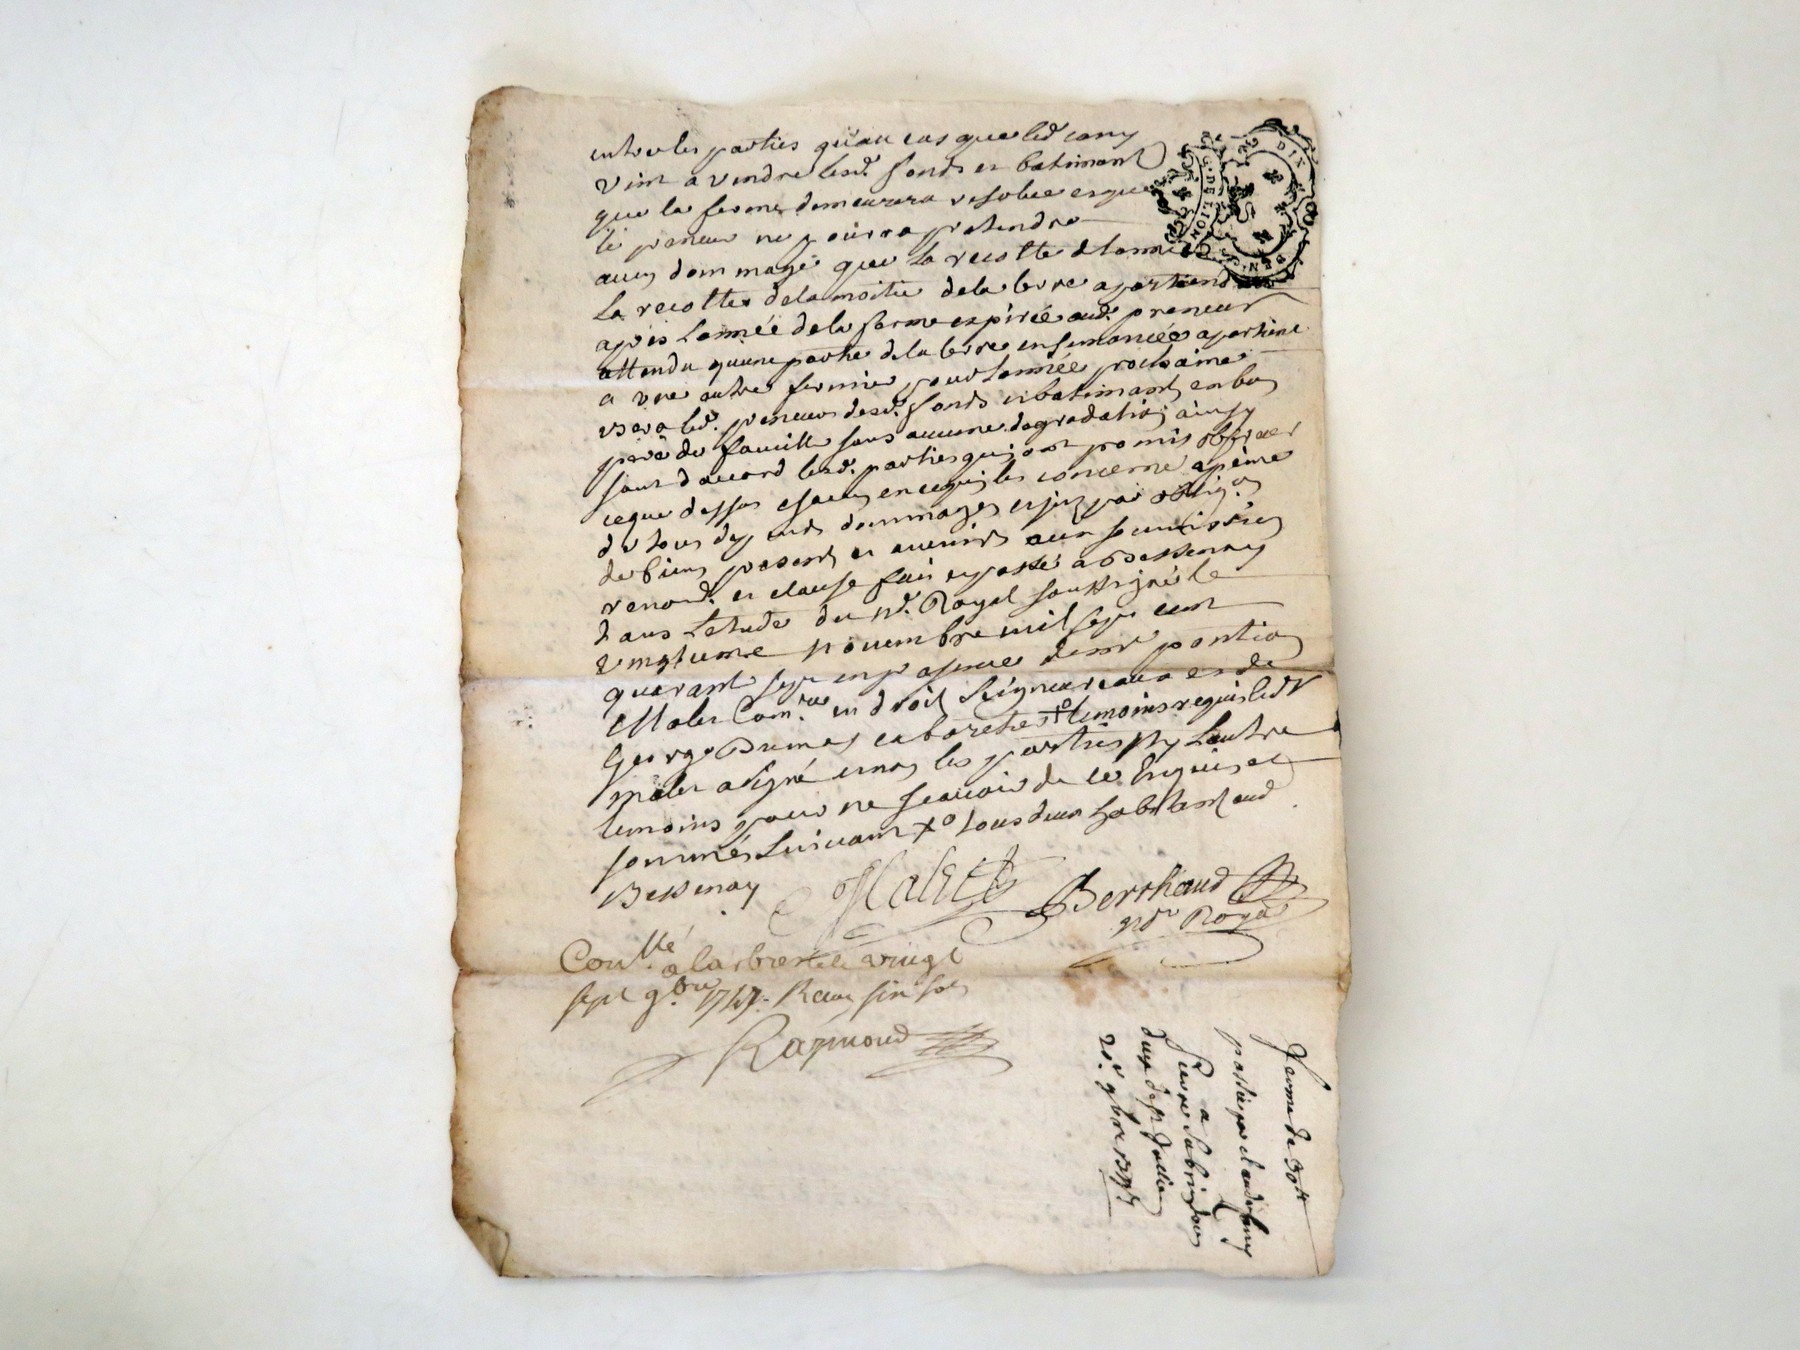 entre les parties qu'au cas que led cany
vint a vendre lesd. fonds et batimant
que la ferme demeurera resolue et que
le preneur ne pourra pretendre
aucun dommage que la recolte de lannée
La recolte de la moitié de la terre apartiendra
après Lannée de la ferme expirée aud. preneur
attendu quune partie de la terre ensemancée apartient
a une autre fermier pour lannée prochaine
usera led. preneur desd. fonds et batimants en bon
père de famille sans aucune degradation ainsy
sont d'accord lesd. parties qui ont promis observer
ce que dessus chacun en ce qui les concerne a peine
de tous depends dommages et par oblig.on
de biens presents et avenirs aux soumissions
renon. et clause fait et passé a Bessenay
dans Letude du nr. Royal soussigné le
vingtieme novembre mil sept cent
quarant sept en presence de sr pontion
Malet Com.re en droit Seigneuriaux et de
George Dumas cabaretier +o temoins requis led sr
malet a signé et non les parties ny Lautre
temoins pour ne scavoir de ce Enquis et
sommés Suivant +o tous deux habitant aud
Bessenay
Malet
Berthaud
nre Royal
Con.llé a larbresle le vingt
sept 9.bre 1747. Reçu six sols
Raymond
DIX
GEN. DE LION
ferme de 30lt
passée par claude cany
a
Pierre
de st Jullien
20.e 9bre 1747